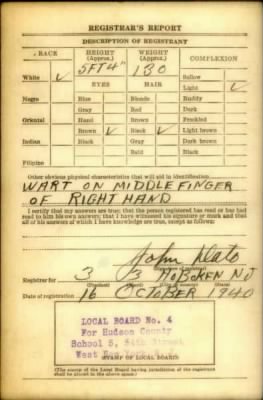 REGISTRAR'S REPORT
DESCRIPTION OF REGISTRANT
RACE HEIGHT (Approx.) WEIGHT (Approx.) COMPLEXION
5FT4" 130 Sallow
White ✓ EYES HAIR Light ✓
Negro Blue Blonde Ruddy
Gray Red Dark
Oriental Hazel Brown Freckled
Brown ✓ Black ✓ Light brown
Indian Black Gray Dark brown
Bald Black
Filipino
Other obvious physical characteristics that will aid in identification
WART ON MIDDLE FINGER
OF RIGHT HAND
I certify that my answers are true; that the person registered has read or has had
read to him his own answers; that I have witnessed his signature or mark and that
all of his answers of which I have knowledge are true, except as follows:
John
Registrar for 3 3 HOBOKEN NJ
Date of registration 16 OCTOBER 1940
LOCAL BOARD No. 4
For Hudson County
School 5, 54th Street
West New
STAMP OF LOCAL BOARD
(The stamp of the Local Board having jurisdiction of the registrant
shall be placed in the above space.)